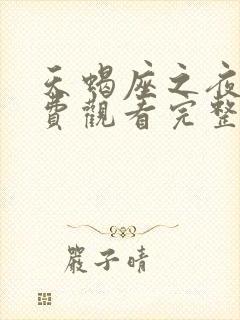 天蝎座之夜
費觀看完整
嚴子晴